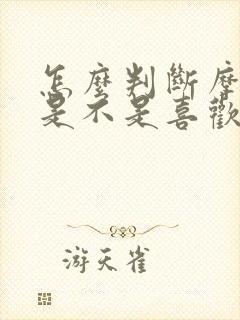 怎麼判斷摩
是不是喜歡
游天雀